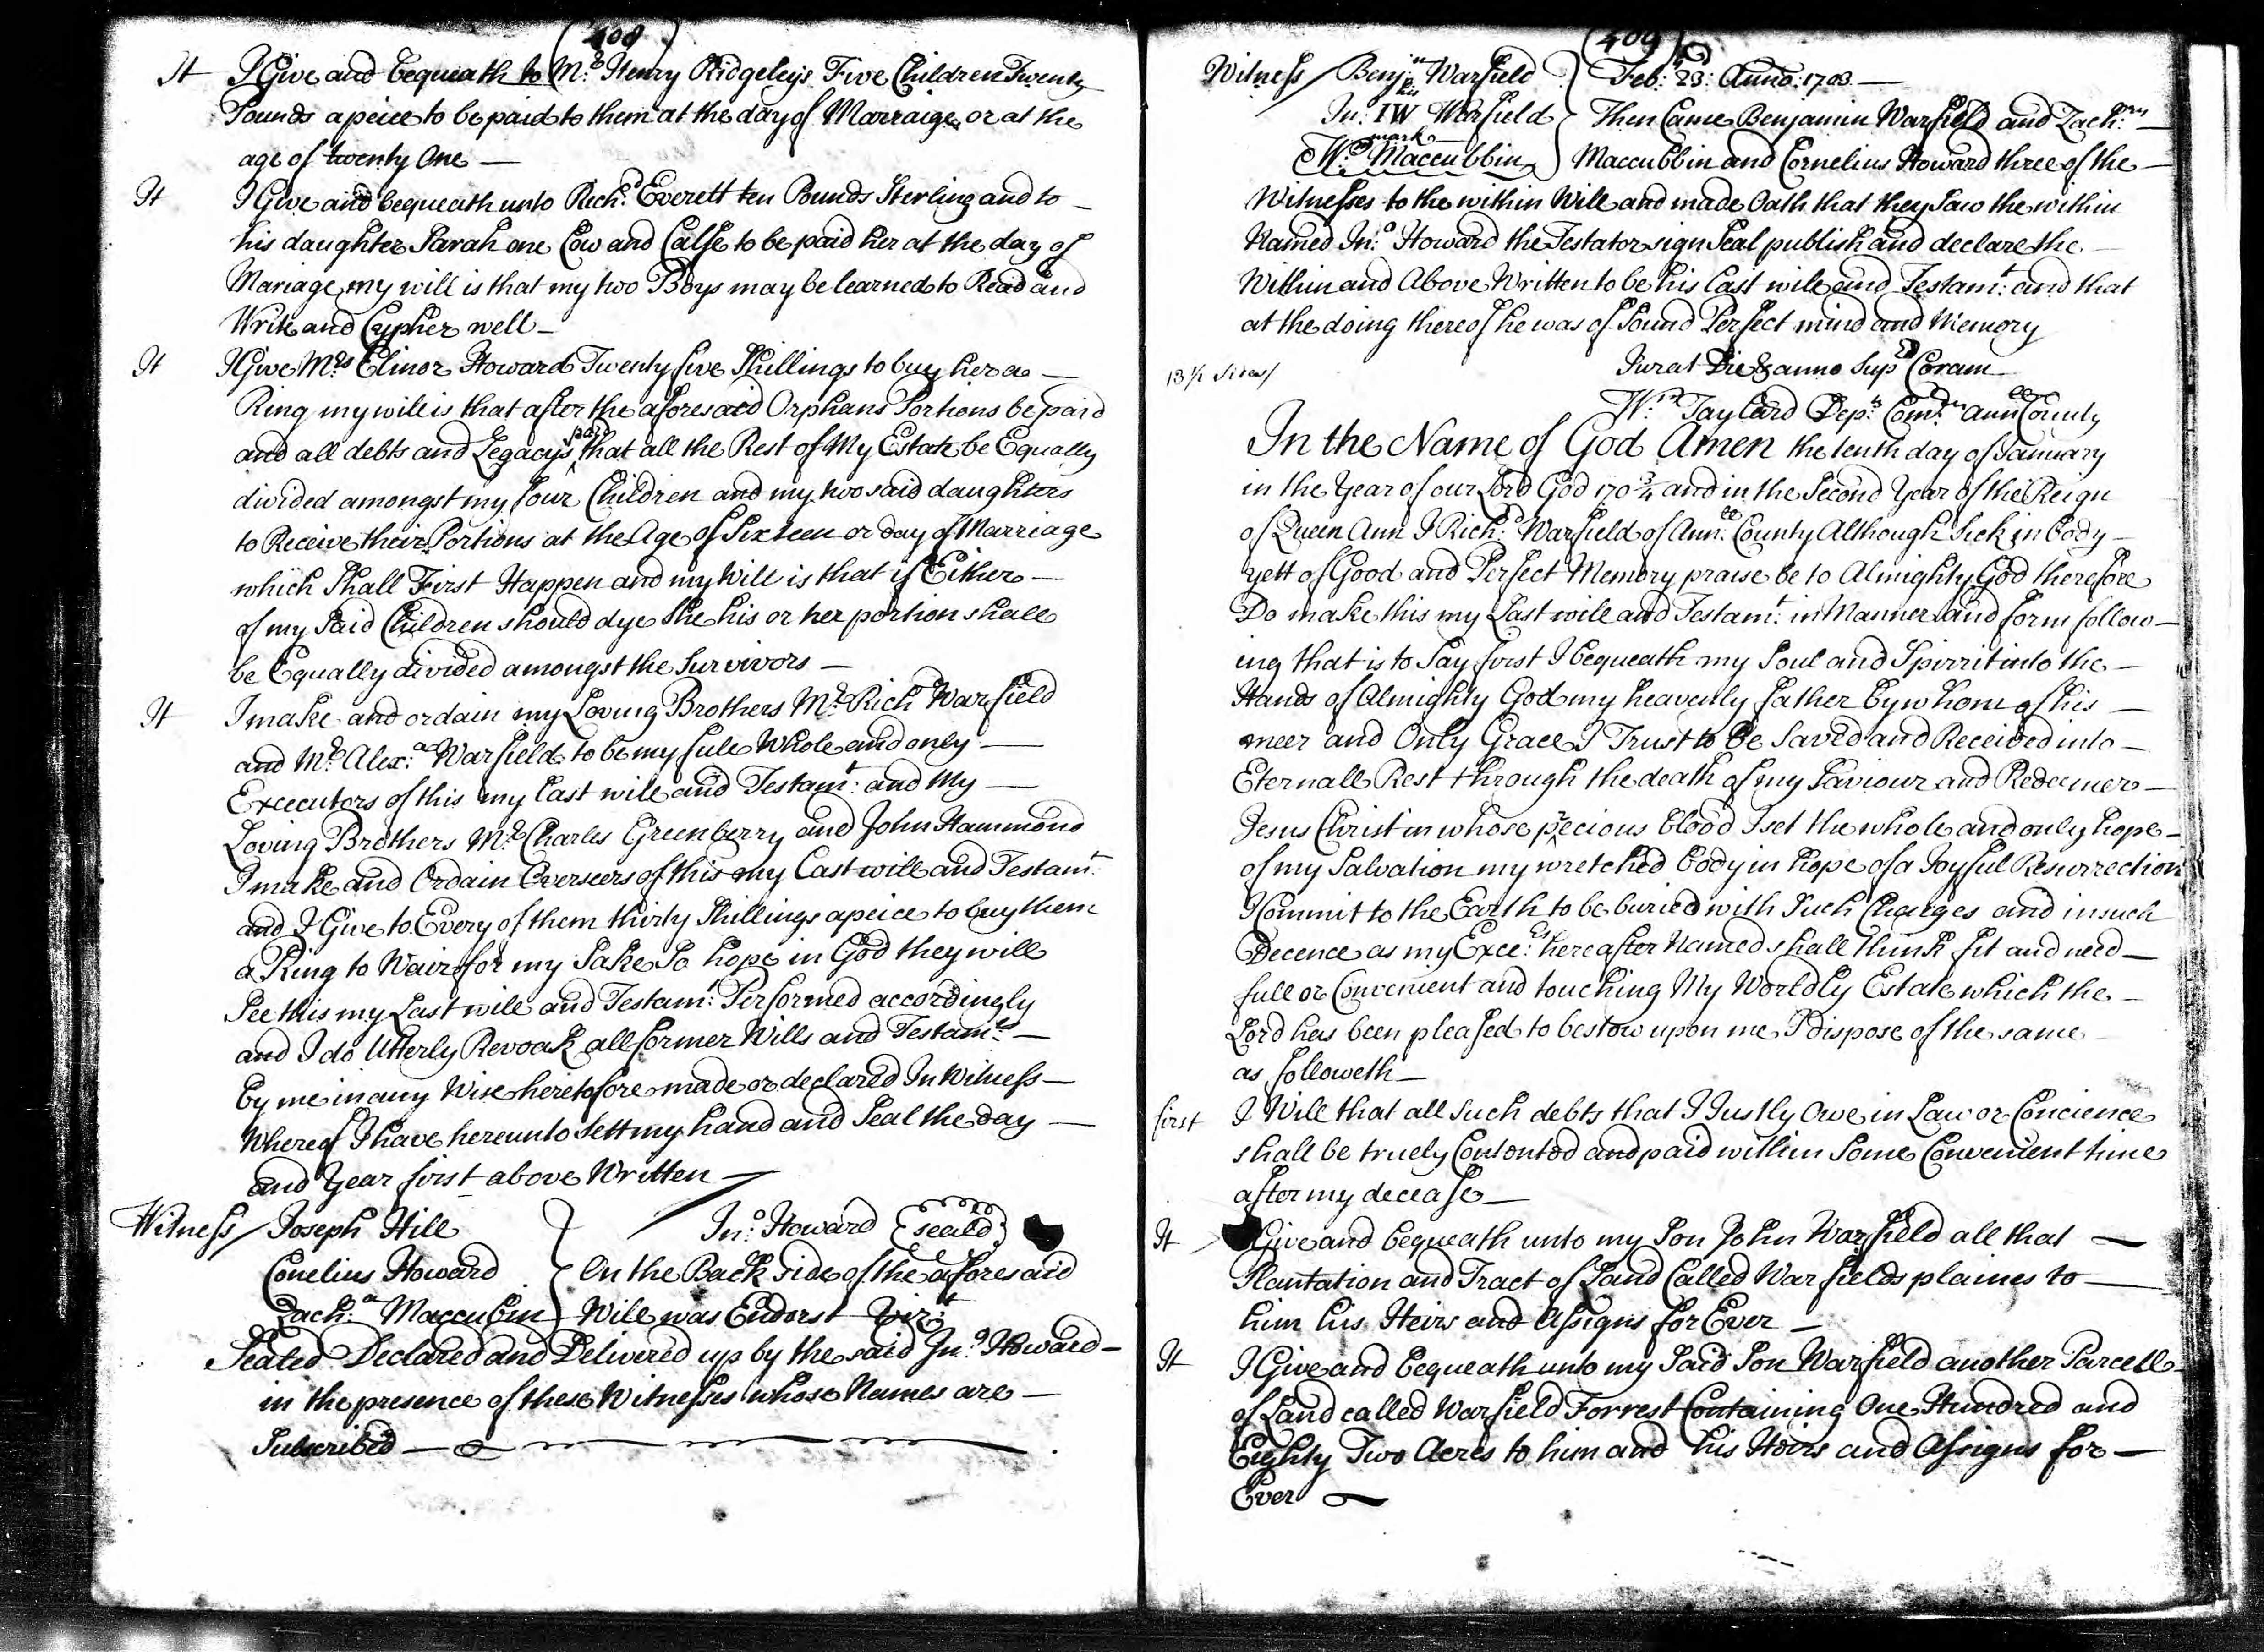 408
It I Give and bequeath to Mr. Henry Ridgelys Five Children Twenty
Pounds apeice to be paid to them at the day of Marraige or at the
age of twenty One —
It I Give and bequeath unto Richd. Everett ten Pounds Sterling and to —
his daughter Sarah one Cow and Calfe to be paid her at the day of
Mariage my will is that my two Boys may be learned to Read and
Write and Cypher well —
It I Give Mrs. Elinor Howard Twenty five Shillings to buy her a —
Ring my will is that after the aforesaid Orphans Portions be paid
and all debts and Legacys paid that all the Rest of My Estate be Equally
divided amongst my four Children and my two said daughters
to Receive their Portions at the Age of Sixteen or day of Marriage
which Shall First Happen and my Will is that if Either —
of my Said Children should dye the his or her portion shall
be Equally divided amongst the Survivors —
It I make and ordain my Loving Brothers Mr. Richd Warfield
and Mr. Alexa. Warfield to be my fule Whole and only —
Excecutors of this my last will and Testamt: and My —
Loving Brothers Mr. Charles Greenberry and John Hammond
I make and Ordain Overseers of this my Last will and Testamt.
and I Give to Every of them thirty Shillings apeice to buy them
a Ring to Wair for my Sake So hope in God they will
See this my Last will and Testamt: Performed accordingly
and I do Utterly Revoak all former Wills and Testamts. —
by me in any Wise heretofore made or declared In Witness —
Whereof I have hereunto Sett my hand and Seal the day —
and Year first above Written —
Witness / Joseph Hill Jno: Howard (seald)
Conelius Howard On the Back side of the aforesaid
Zacha. Maccubin Will was Endorst Vizt.
Sealed Declared and Delivered up by the said Jno. Howard —
in the presence of these Witnesses whose Names are —
Subscribed —
409
Witness / Benjn. Warfield Feb: 23: Anno: 1703 —
his
Jn: IW Warfield Then Came Benjamin Warfield and Zach: —
mark
Wm. Maccubbin Maccubbin and Cornelius Howard three of the —
Witnesses to the within Will and made Oath that they Saw the within
Named Jno. Howard the Testator sign Seal publish and declare the —
Within and Above Written to be his last will and Testamt: and that
at the doing thereof he was of Sound Perfect mind and Memory
Jurat Die & anno Supd Coram
13½ Sides/
Wm. Taylard Depty Comry. annll County
In the Name of God Amen the tenth day of January
in the Year of our Lord God 170¾ and in the Second Year of the Reign
of Queen Ann I Richd. Warfield of Annll. County Although Sick in body —
yett of Good and Perfect Memory praise be to Almighty God therefore
Do make this my Last will and Testamt: in Manner and form follow —
ing that is to Say first I bequeath my Soul and Spirrit into the —
Hands of Almighty God my heavenly father by whom of his —
meer and Only Grace I Trust to be Saved and Received into —
Eternall Rest through the death of my Saviour and Redeemer —
Jesus Christ in whose precious blood I set the whole and only hope —
of my Salvation my wretched body in hope of a Joyful Resurrection
I Commit to the Earth to be buried with Such Charges and in such
Decence as my Exce:rs hereafter Named shall think fit and need —
full or Convenient and touching My Worldly Estate which the —
Lord has been pleased to bestow upon me I dispose of the same —
as followeth —
first I Will that all such debts that I Justly Owe in Law or Concience
shall be truely Contented and paid within Some Convenient time
after my decease —
It I Give and bequeath unto my Son John Warfield all that —
Plantation and Tract of Land Called Warfields plaines to —
him his Heirs and Assigns for Ever —
It I Give and bequeath unto my Said Son Warfield another Parcell
of Land called Warfield Forrest Containing One Hundred and
Eighty Two Acres to him and his Heirs and Assigns for —
Ever